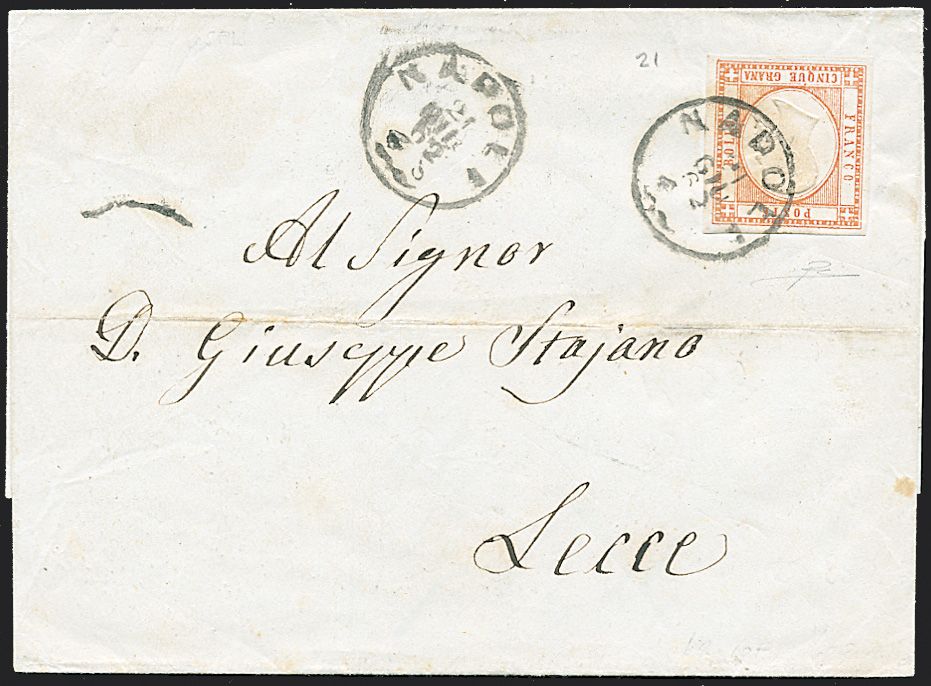 NAPOLI
21
NAPOLI
FRANCO
BOLLO
POSTALE
CINQUE GRANA
Al Signor
D. Giuseppe Stajano
Lecce